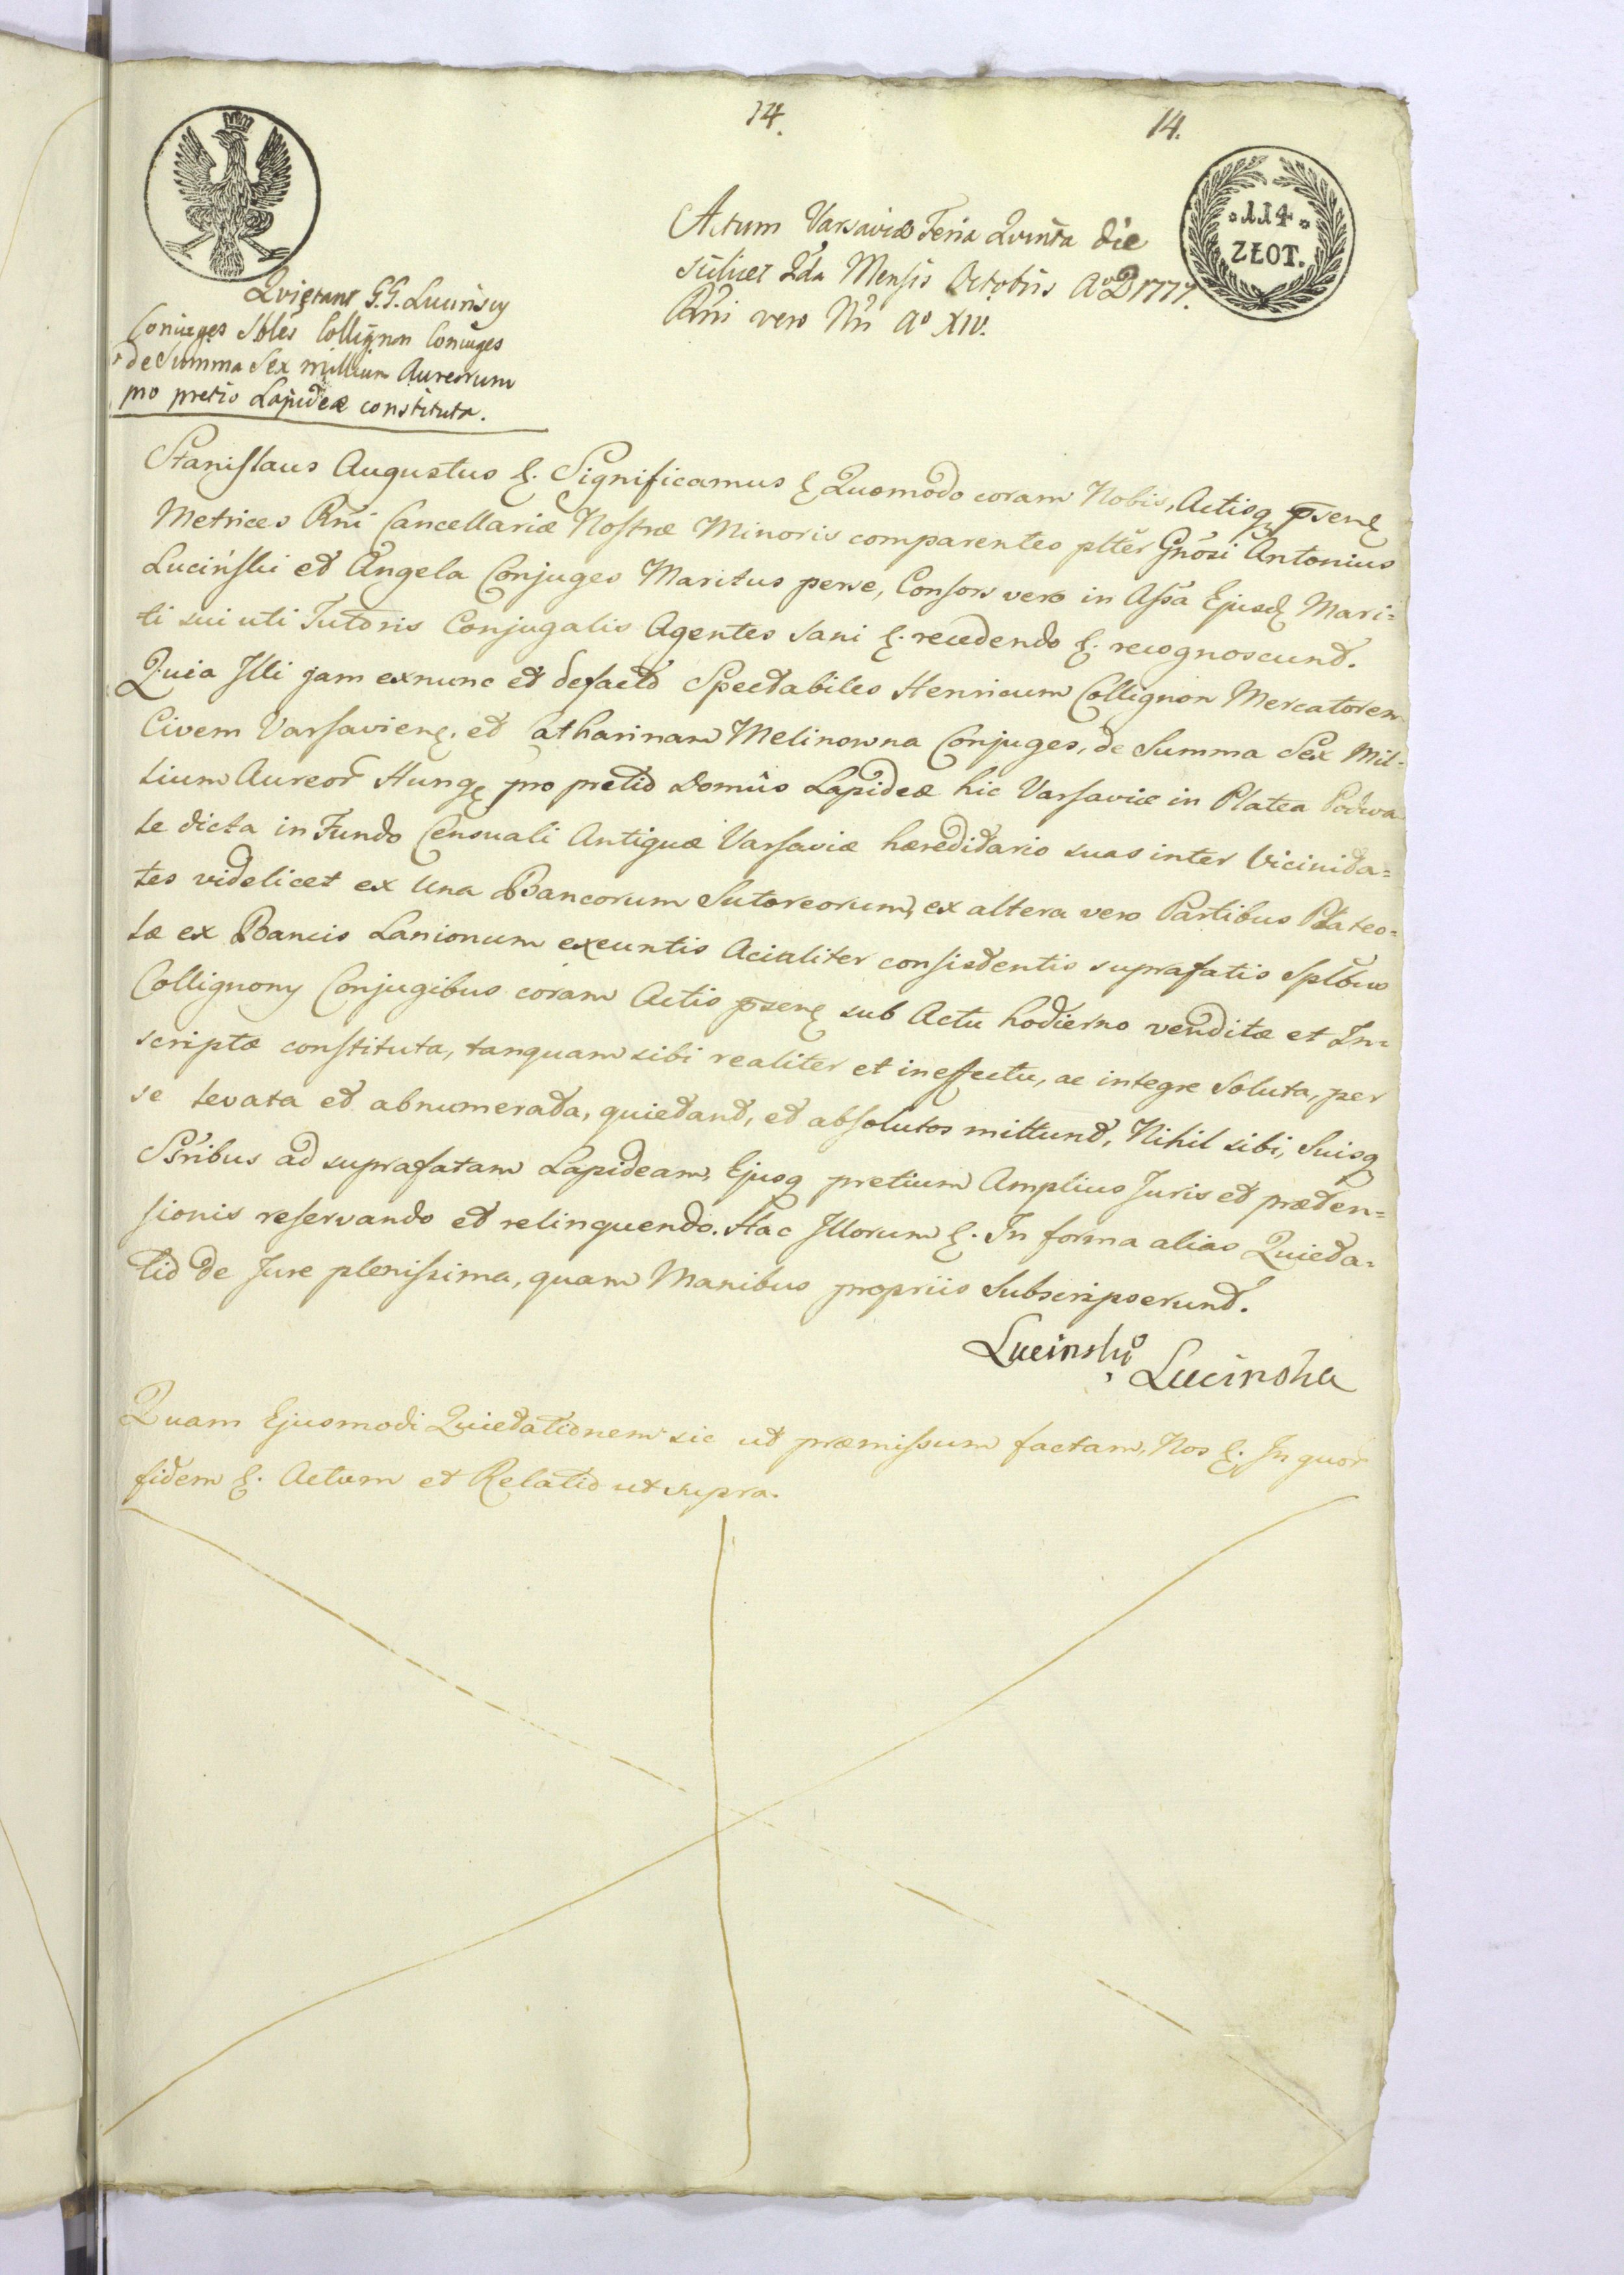 14.
14.
114
ZŁOT.
Actum Varsaviæ Feria Quinta die
scilicet 2da Mensis Octobris Ao D 1777.
Rni vero Nri Ao XIV.
Quietant G.G. Lucinscy
Coniuges Sbles Collignon Coniuges
de Summa Sex millium Aureorum
pro pretio Lapideæ constituta.
Stanislaus Augustus &. Significamus & Quomodo coram Nobis, Actisq psen&
Metrices Rni Cancellariæ Nostræ Minoris comparentes plter Gnosi Antonius
Luciński et Angela Conjuges Maritus perse, Consors vero in Assa Ejusd Mari-
ti sui uti Tutoris Conjugalis Agentes sani &. recedendo &. recognoscunt.
Quia Illi jam exnunc et defacto Spectabiles Henricum Collignon Mercatorem
Civem Varsavien&. et Catharinam Melinowna Conjuges, de Summa Sex Mil-
lium Aureor Hung& pro pretio Domûs Lapideæ hic Varsaviæ in Platea Podwa
le dicta in Fundo Censuali Antiquæ Varsaviæ hæreditario suas inter Vicinita-
tes videlicet ex Una Bancorum Sutoreorum, ex altera vero Partibus Plateo-
læ ex Bancis Lanionum exeuntis Acialiter consistentis suprafatis Splbus
Collignony Conjugibus coram Actis psen& sub Actu hodierno venditæ et In-
scriptæ constituta, tanquam sibi realiter et ineffectu, ac integre Soluta, per
se levata et abnumerata, quietant, et absolutos mittunt, Nihil sibi, Suisq
Ssribus ad suprafatam Lapideam, Ejusq pretium Amplius Juris et præten-
sionis reservando et relinquendo. Hac Illorum &. In forma alias Quieta-
tio de Jure plenissima, quam Manibus propriis Subscripserunt.
Lucinski
Lucinska
Quam Ejusmodi Quietationem sic ut præmissum factam, Nos &. In quor
fidem &. Actum et Relatio ut supra.